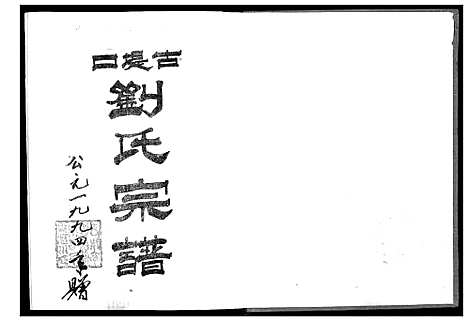 古堤口
劉氏宗譜
公元一九九四年贈